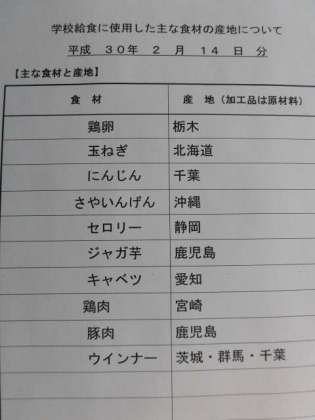 学校給食に使用した主な食材の産地について
平成 30年 2 月 14 日 分
【主な食材と産地】
食 材 産 地（加工品は原材料）
鶏卵 栃木
玉ねぎ 北海道
にんじん 千葉
さやいんげん 沖縄
セロリー 静岡
ジャガ芋 鹿児島
キャベツ 愛知
鶏肉 宮崎
豚肉 鹿児島
ウインナー 茨城・群馬・千葉